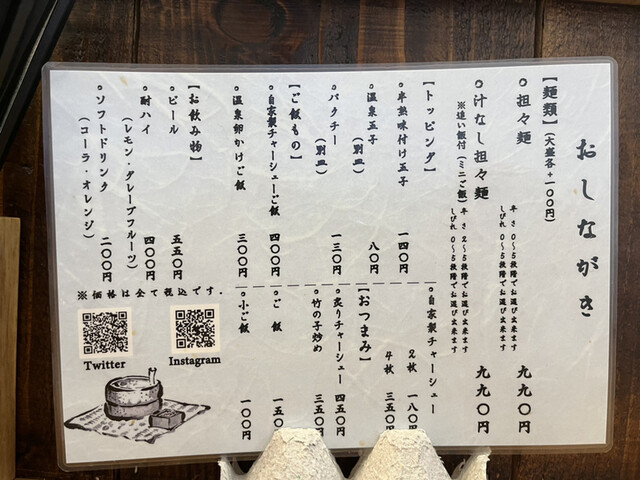 おしながき
【麺類】(大盛各+一〇〇円)
○担々麺
辛さ 0〜5段階でお選び出来ます
しびれ 0〜5段階でお選び出来ます
九九〇円
○汁なし担々麺
※追い飯付(ミニご飯)
辛さ 2〜5段階でお選び出来ます
しびれ 0〜5段階でお選び出来ます
九九〇円
【トッピング】
○半熟味付け玉子 一四〇円
○温泉玉子 八〇円
(別皿)
○パクチー 一三〇円
(別皿)
○自家製チャーシュー
2枚 一八〇円
4枚 三五〇円
【おつまみ】
○炙りチャーシュー 四五〇円
○竹の子炒め 三五〇円
【ご飯もの】
○自家製チャーシューご飯 四〇〇円
○温泉卵かけご飯 三〇〇円
○ご飯 一五〇
○小ご飯 一〇〇円
【お飲み物】
○ビール 五五〇円
○酎ハイ 四〇〇円
(レモン・グレープフルーツ)
○ソフトドリンク 二〇〇円
(コーラ・オレンジ)
※価格は全て税込です.
Twitter
Instagram